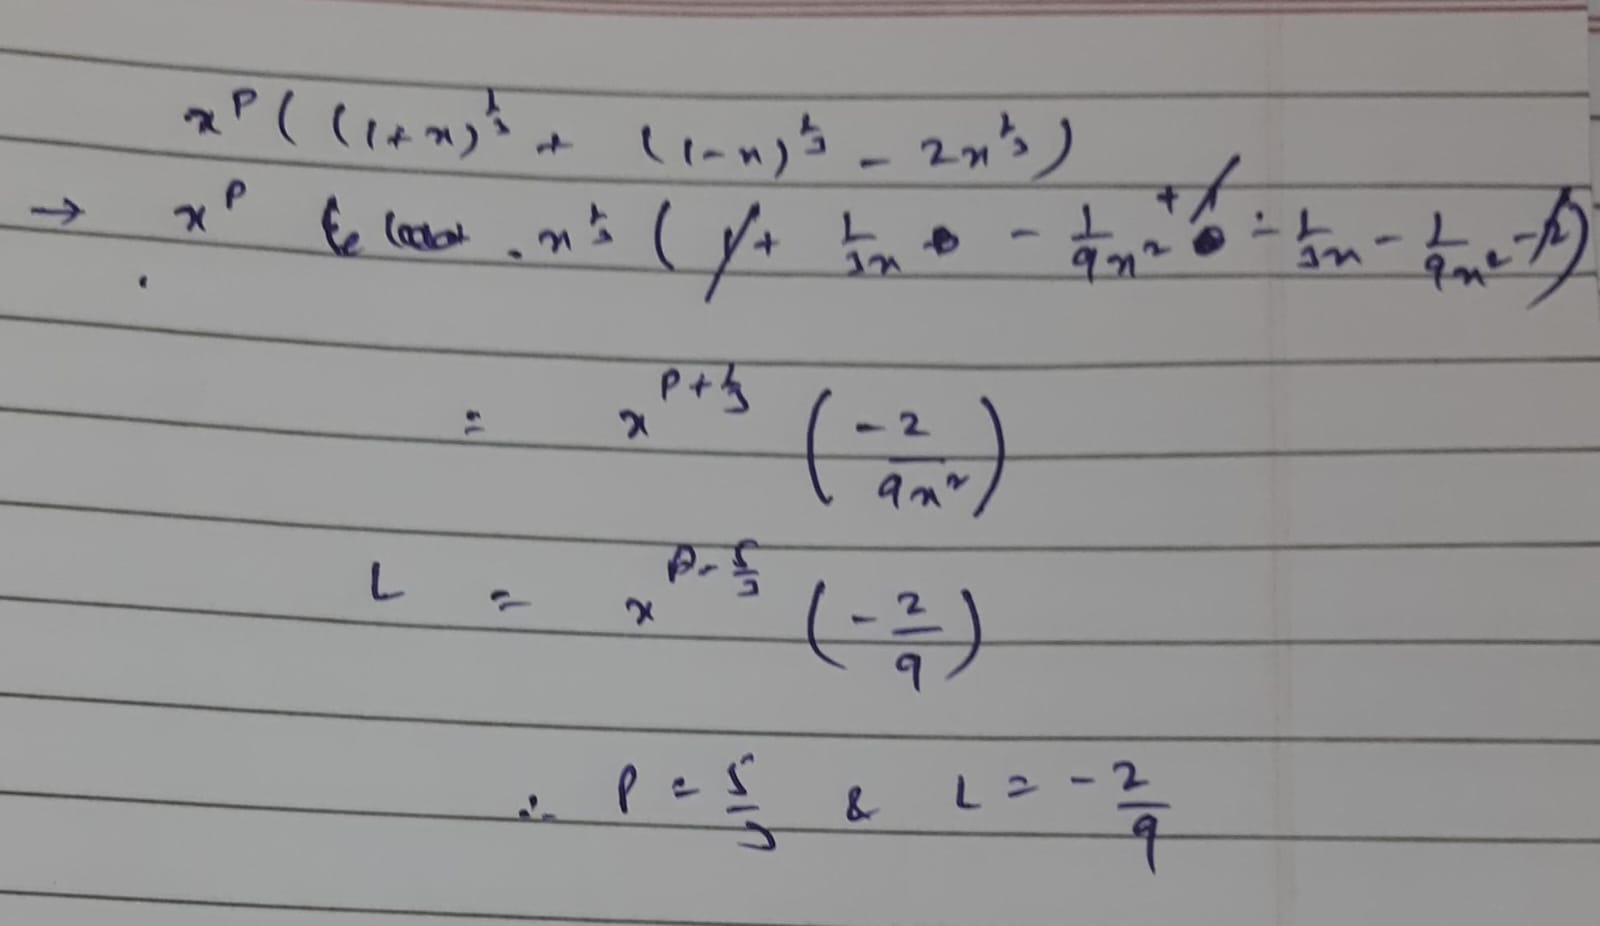 x^p ( (1+x)^{1/3} + (1-x)^{1/3} - 2x^{1/3} )
→ x^p . x^{1/3} ( 1 + 1/3x - 1/9x² + 1 - 1/3x - 1/9x² - 2 )
= x^{p+1/3} ( -2/9x² )
L = x^{p-5/3} ( -2/9 )
∴ P = 5/3 & L = -2/9